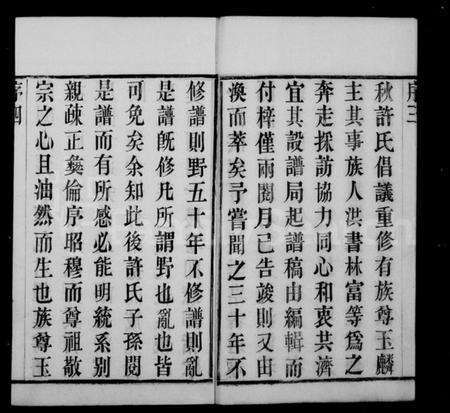 序三
秋許氏倡議重修有族尊玉麟
主其事族人洪書林富等為之
奔走採訪協力同心和衷共濟
宜其設譜局起譜稿由編輯而
付梓僅兩閱月已告竣則又由
渙而萃矣予嘗聞之三十年不
修譜則野五十年不修譜則亂
是譜旣修凡所謂野也亂也皆
可免矣余知此後許氏子孫閱
是譜而有所感必能明統系別
親疎正彝倫序昭穆而尊祖敬
宗之心且油然而生也族尊玉
序四